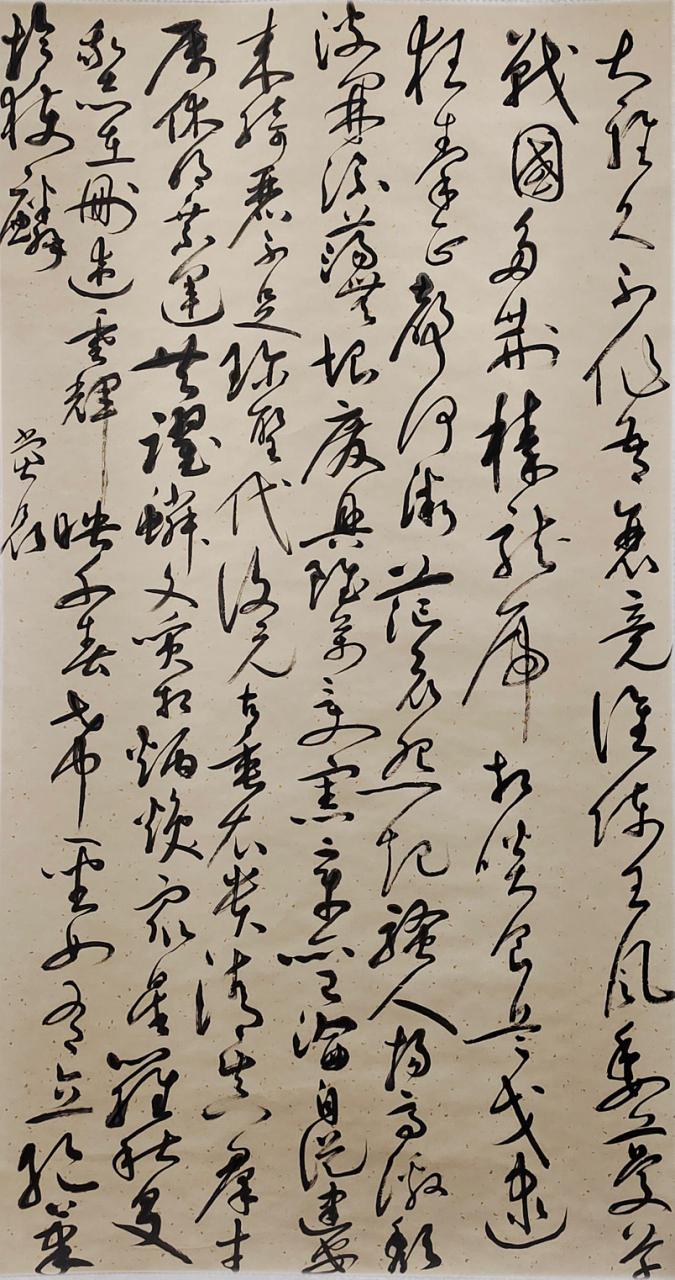 大雅久不作吾衰竟誰陳王風委蔓草
戰國多荊榛龍虎相啖食兵戈逮
狂秦正聲何微茫哀怨起騷人揚馬激頹
波開流蕩無垠廢興雖萬變憲章亦已淪自從建安
來綺麗不足珍聖代復元古垂衣貴清真群才
屬休明乘運共躍鱗文質相炳煥眾星羅秋旻
我志在刪述垂輝映千春希聖如有立絕筆
於獲麟